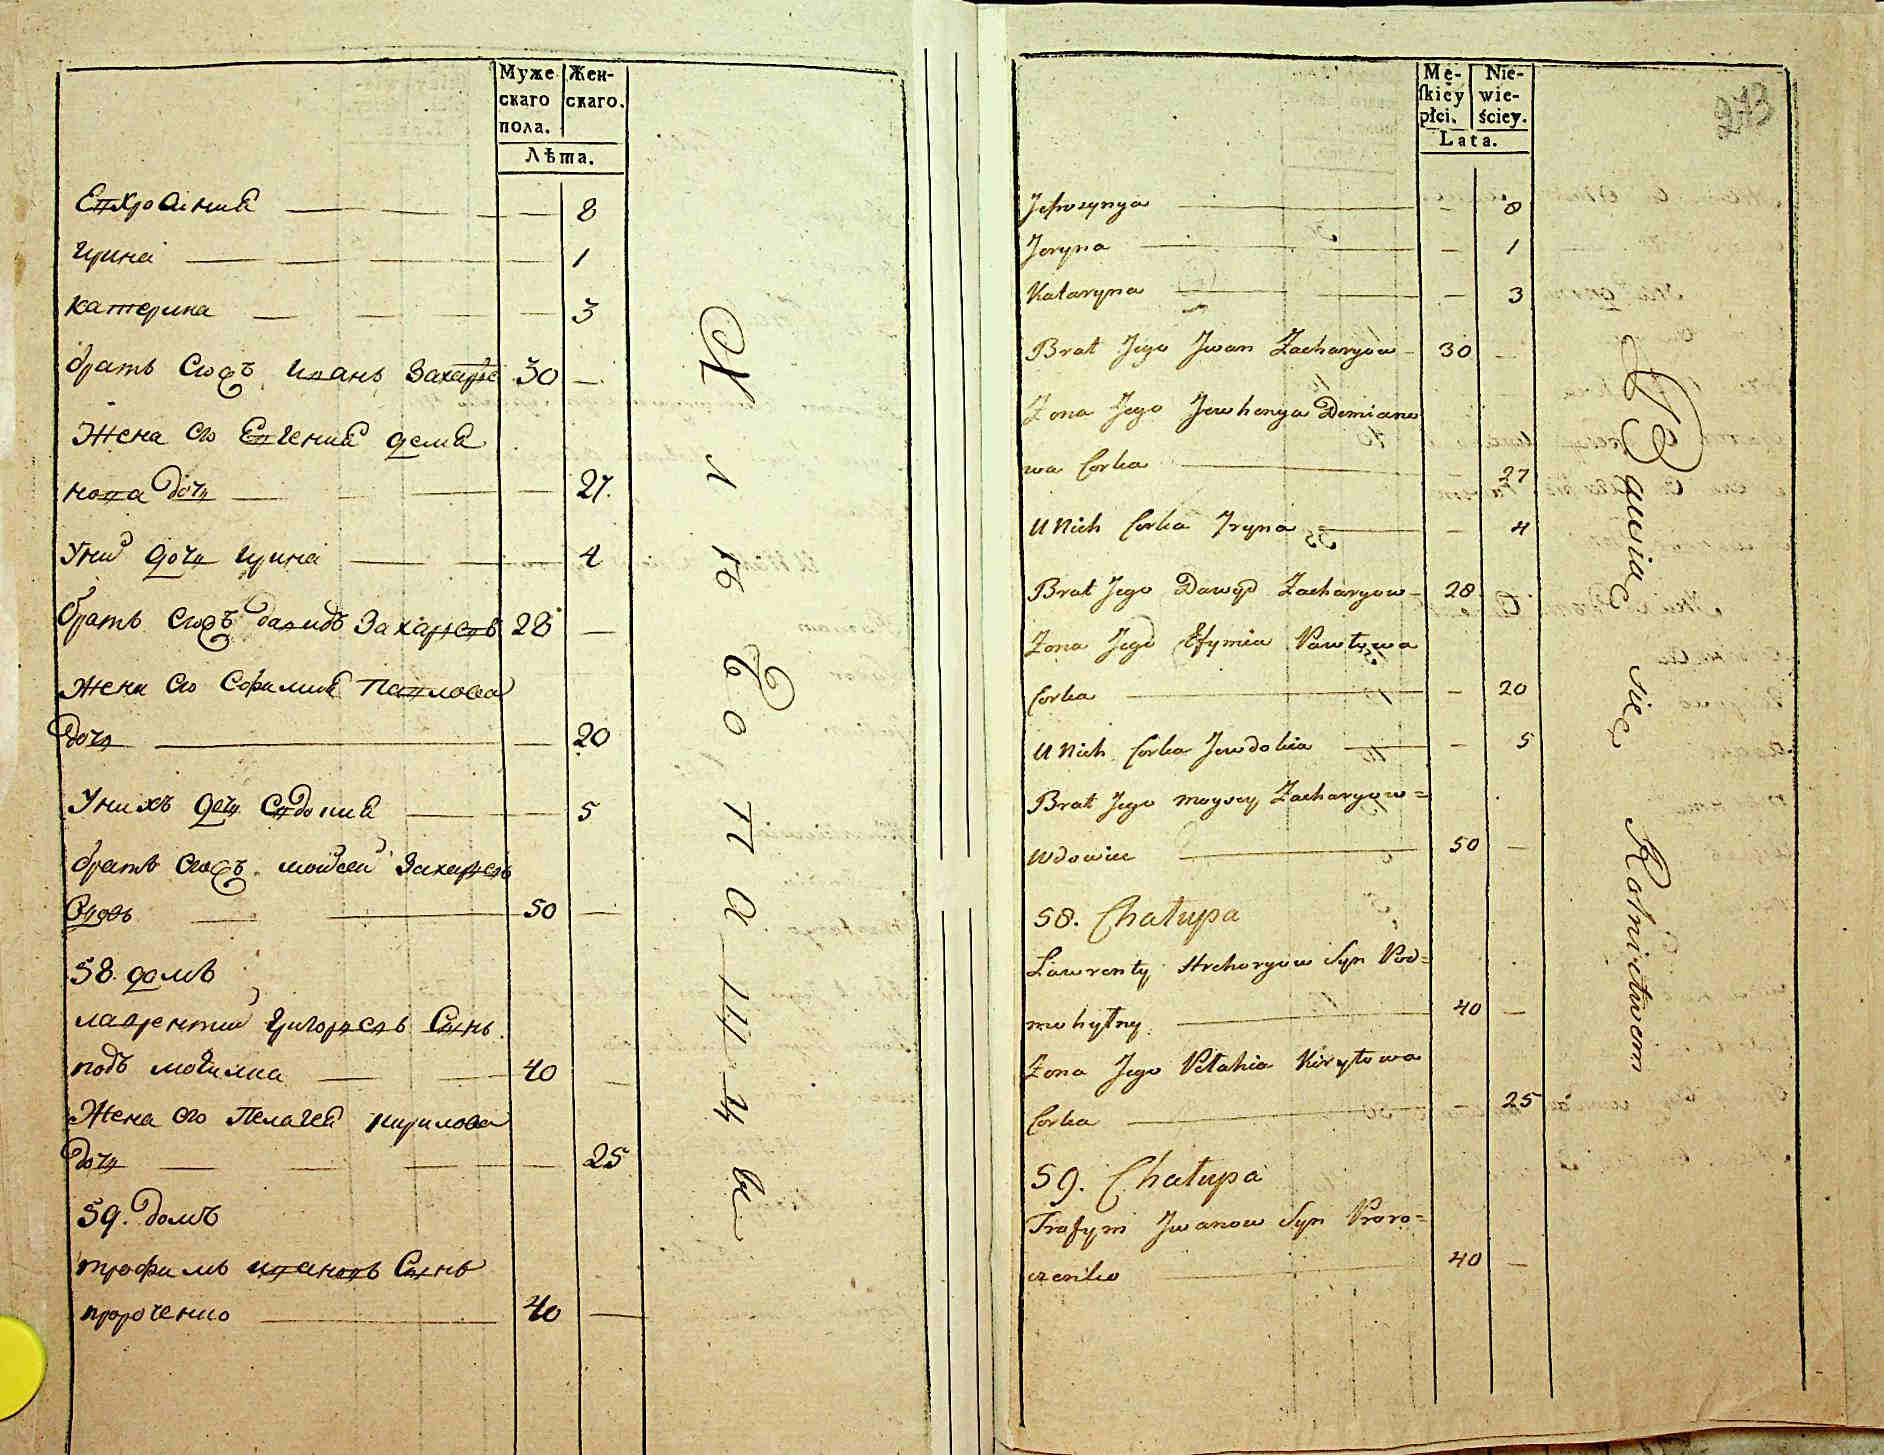 Муже
скаго
пола.
Жен-
скаго.
Лѣта.
Евхросиния — 8
ирина — 1
катерина — 3
братъ Єгожъ иванъ Захарев 30 —
Жена его Евгения деми
нова дочь — 27.
Уних дочь ирина — 4
братъ егожъ давидъ Захаревъ 28 —
жена его Єфимия павлова
дочь — 20
Унихъ дочь Євдокия — 5
братъ егожъ моисей Захаревъ
вдовъ — 50 —
58. домъ
лаврентий григоревъ Сынъ
подъ могилна — 40 —
Жена его Пелагея кирилова
дочь — 25
59. домъ
трофимъ ивановъ Сынъ
пророченко — 40 —
Хлѣбопашцы
Mę-
ſkiey
płci.
Nie-
wie-
ściey.
Lata.
273
Jefrozynya — 8
Jeryna — 1
Kataryna — 3
Brat Jego Jwan Zacharyow - 30 —
Zona Jego Jewhenya Demiano
wa Corka — 27
U Nich Corka Jryna — 4
Brat Jego Dawyd Zacharyow - 28 —
Zona Jego Efymia Pawłowa
Corka — 20
U Nich Corka Jewdokia — 5
Brat Jego Moysey Zacharyow =
Wdowiec — 50 —
58. Chałupa
Ławrenty Hrehoryow Syn Pod=
mohylny — 40 —
Zona Jego Pełahia Kiryłowa
Corka — 25
59. Chałupa
Trofym Jwanow Syn Proro=
czenko — 40 —
Bawiące się Rolnictwem